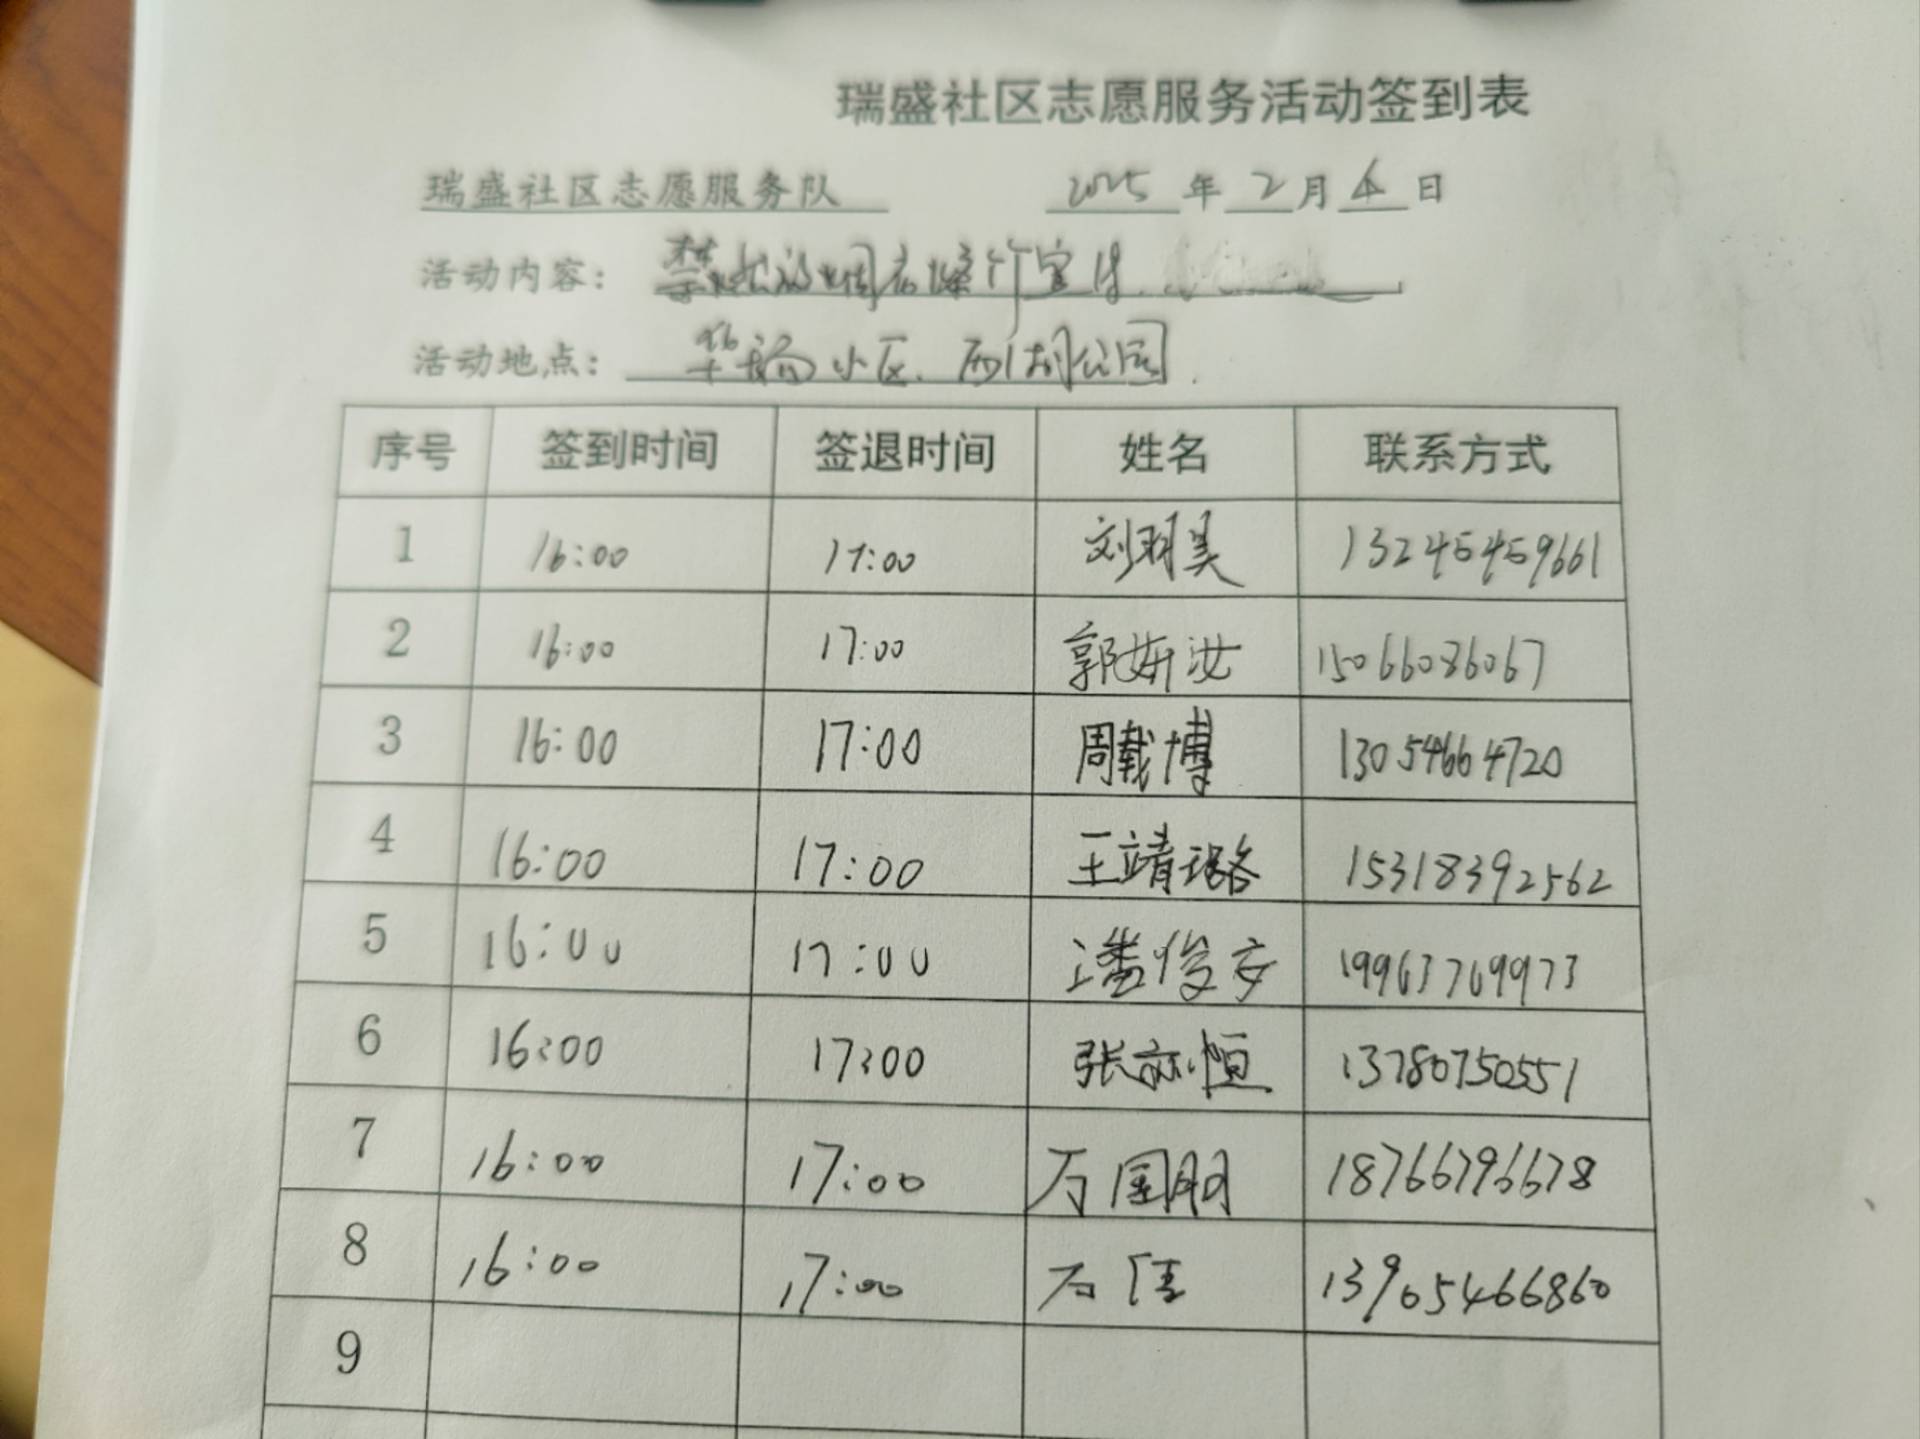 瑞盛社区志愿服务活动签到表
瑞盛社区志愿服务队 2025 年 2 月 4 日
活动内容: 禁燃放烟花爆竹宣传
活动地点: 小区、西湖公园
序号 签到时间 签退时间 姓名 联系方式
1 16:00 17:00 刘羽昊 13245459661
2 16:00 17:00 郭妍汝 15066086067
3 16:00 17:00 周载博 13054664720
4 16:00 17:00 王靖璐 15318392562
5 16:00 17:00 潘俊安 19963769973
6 16:00 17:00 张亦恒 13780750551
7 16:00 17:00 万国朋 18766796678
8 16:00 17:00 万佳 13905466860
9